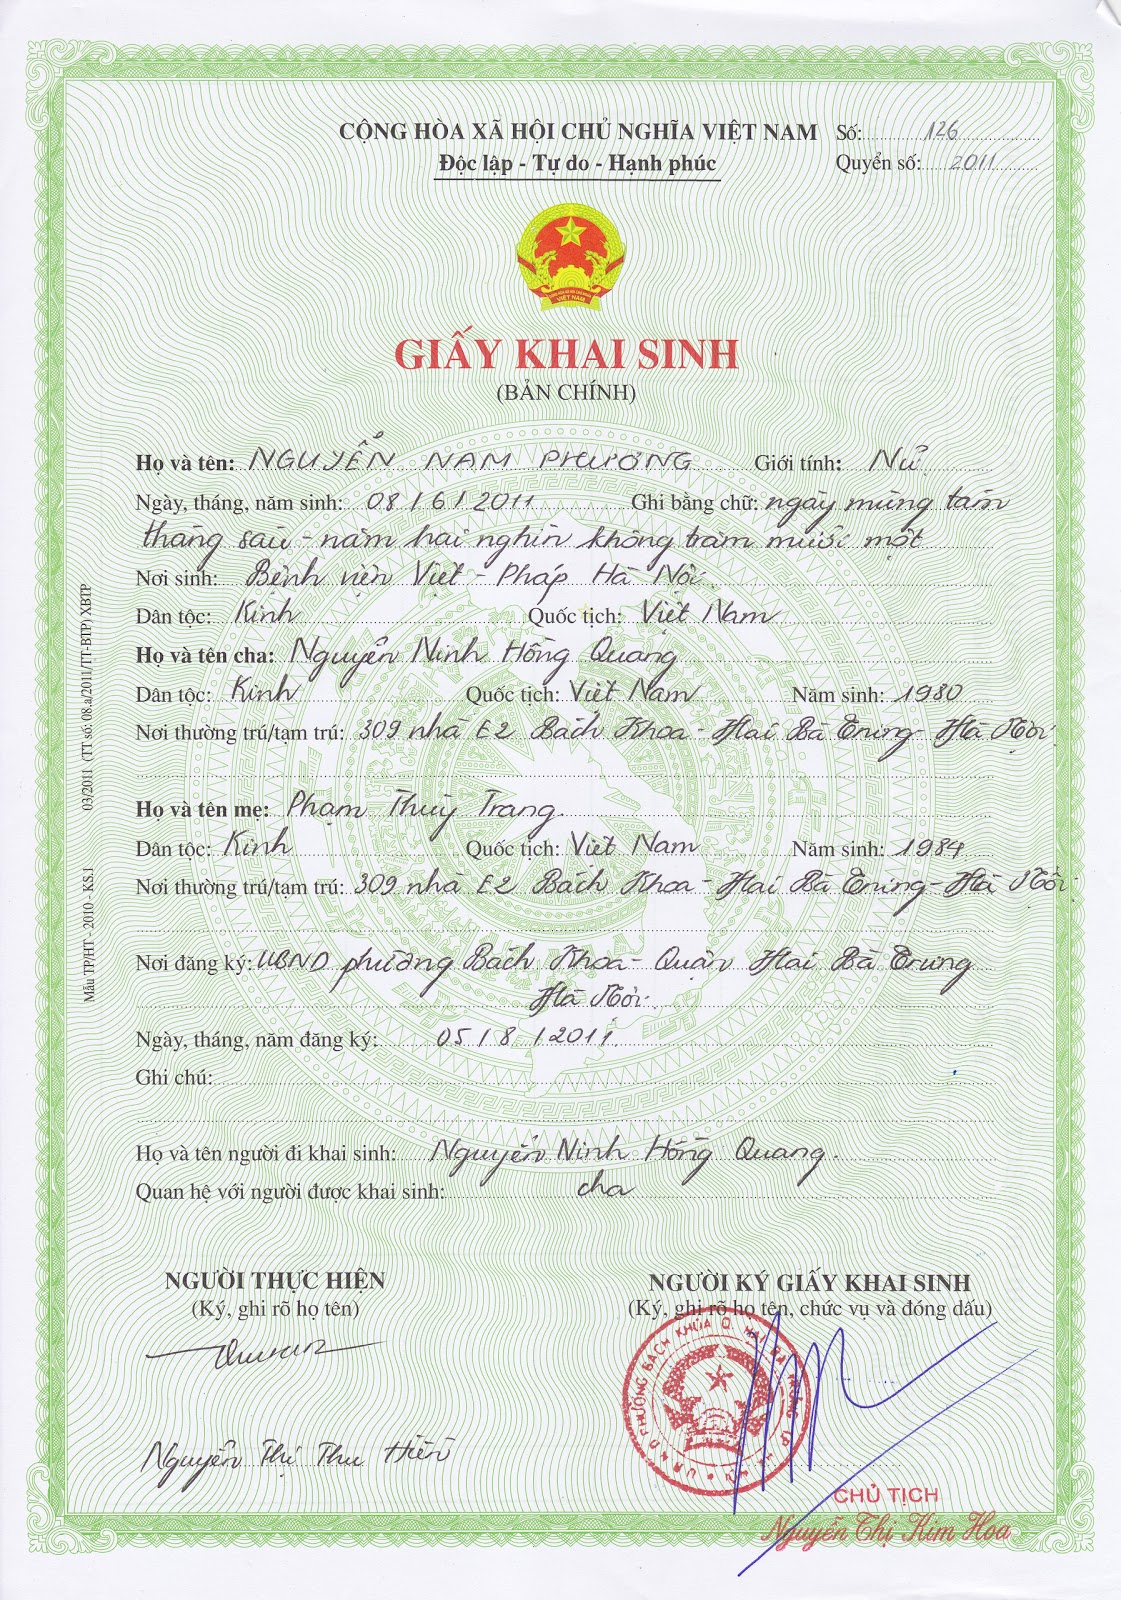 CỘNG HÒA XÃ HỘI CHỦ NGHĨA VIỆT NAM Số: 126
Độc lập - Tự do - Hạnh phúc Quyển số: 2011
VIỆT NAM
GIẤY KHAI SINH
(BẢN CHÍNH)
Họ và tên: NGUYỄN NAM PHƯƠNG Giới tính: Nữ
Ngày, tháng, năm sinh: 08/6/2011 Ghi bằng chữ: ngày mùng tám
tháng sáu - năm hai nghìn không trăm mười một
Nơi sinh: Bệnh viện Việt - Pháp Hà Nội.
Dân tộc: Kinh Quốc tịch: Việt Nam
Họ và tên cha: Nguyễn Ninh Hồng Quang
Dân tộc: Kinh Quốc tịch: Việt Nam Năm sinh: 1980
Nơi thường trú/tạm trú: 309 nhà E2 Bách Khoa - Hai Bà Trưng - Hà Nội.
Họ và tên mẹ: Phạm Thuỳ Trang.
Dân tộc: Kinh Quốc tịch: Việt Nam Năm sinh: 1984
Nơi thường trú/tạm trú: 309 nhà E2 Bách Khoa - Hai Bà Trưng - Hà Nội.
Nơi đăng ký: UBND phường Bách Khoa - Quận Hai Bà Trưng
Hà Nội.
Ngày, tháng, năm đăng ký: 05/8/2011.
Ghi chú:
Họ và tên người đi khai sinh: Nguyễn Ninh Hồng Quang.
Quan hệ với người được khai sinh: cha
NGƯỜI THỰC HIỆN
(Ký, ghi rõ họ tên)
Nguyễn Thị Thu Hiền
NGƯỜI KÝ GIẤY KHAI SINH
(Ký, ghi rõ họ tên, chức vụ và đóng dấu)
U.B.N.D PHƯỜNG BÁCH KHOA Q. HAI BÀ TRƯNG T.P HÀ NỘI
CHỦ TỊCH
Nguyễn Thị Kim Hoa
Mẫu TP/HT - 2010 - KS.1 03/2011 (TT số: 08.a/2011/TT-BTP) XBTP